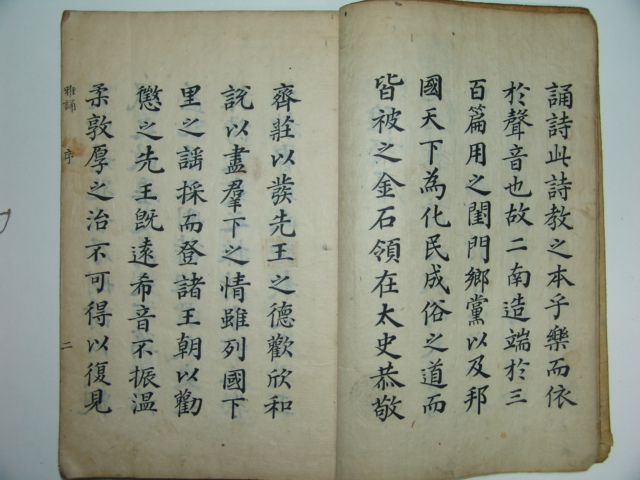 誦詩此詩教之本乎樂而依
於聲音也故二南造端於三
百篇用之閨門鄉黨以及邦
國天下為化民成俗之道而
皆被之金石領在太史恭敬
齊莊以發先王之德歡欣和
說以盡羣下之情雖列國下
里之謡採而登諸王朝以勸
懲之先王既遠希音不振温
柔敦厚之治不可得以復見
雅誦 序 二